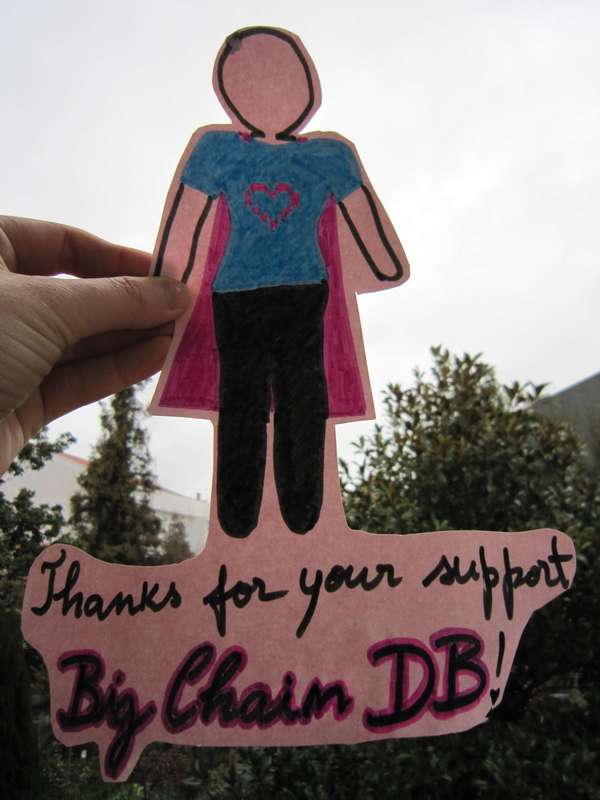 Thanks for your support
Big Chain DB!